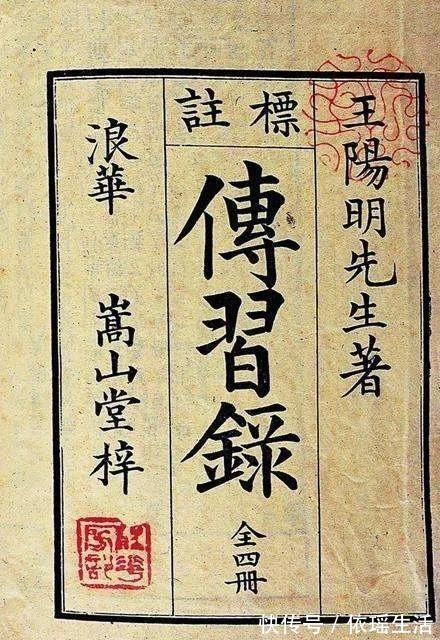 王陽明先生著
標註
傳習錄
全四冊
浪華 嵩山堂梓
快传号/依瑶生活